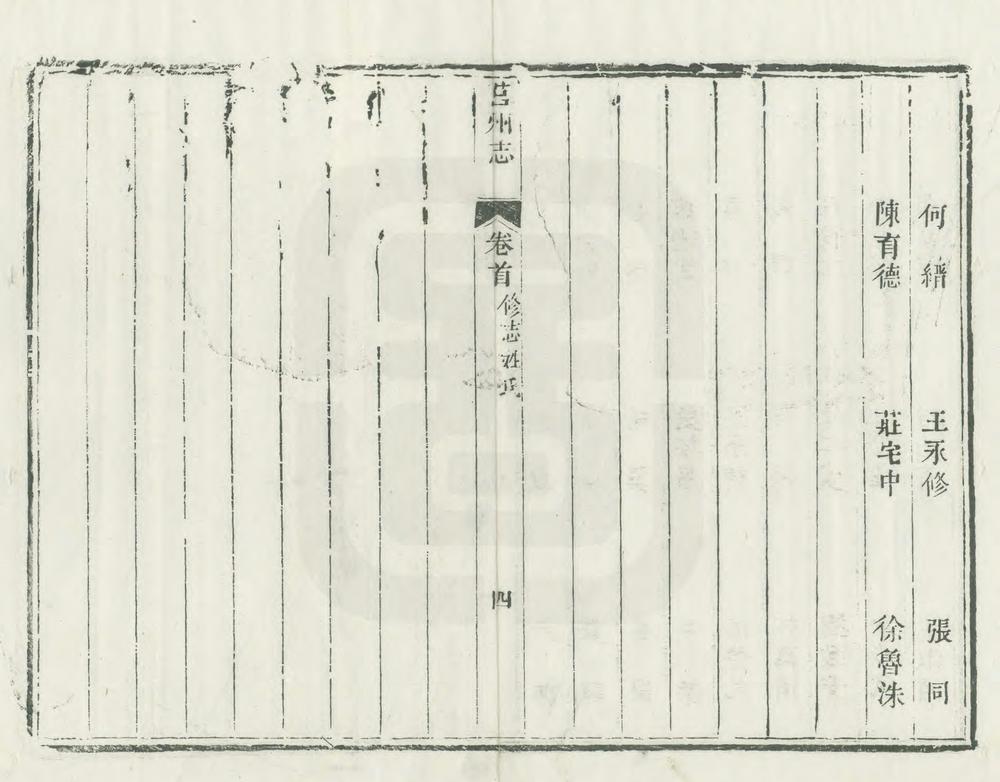 何縉　王永修　張同
陳育德　莊宅中　徐魯洙
莒州志　卷首　修志姓氏　四